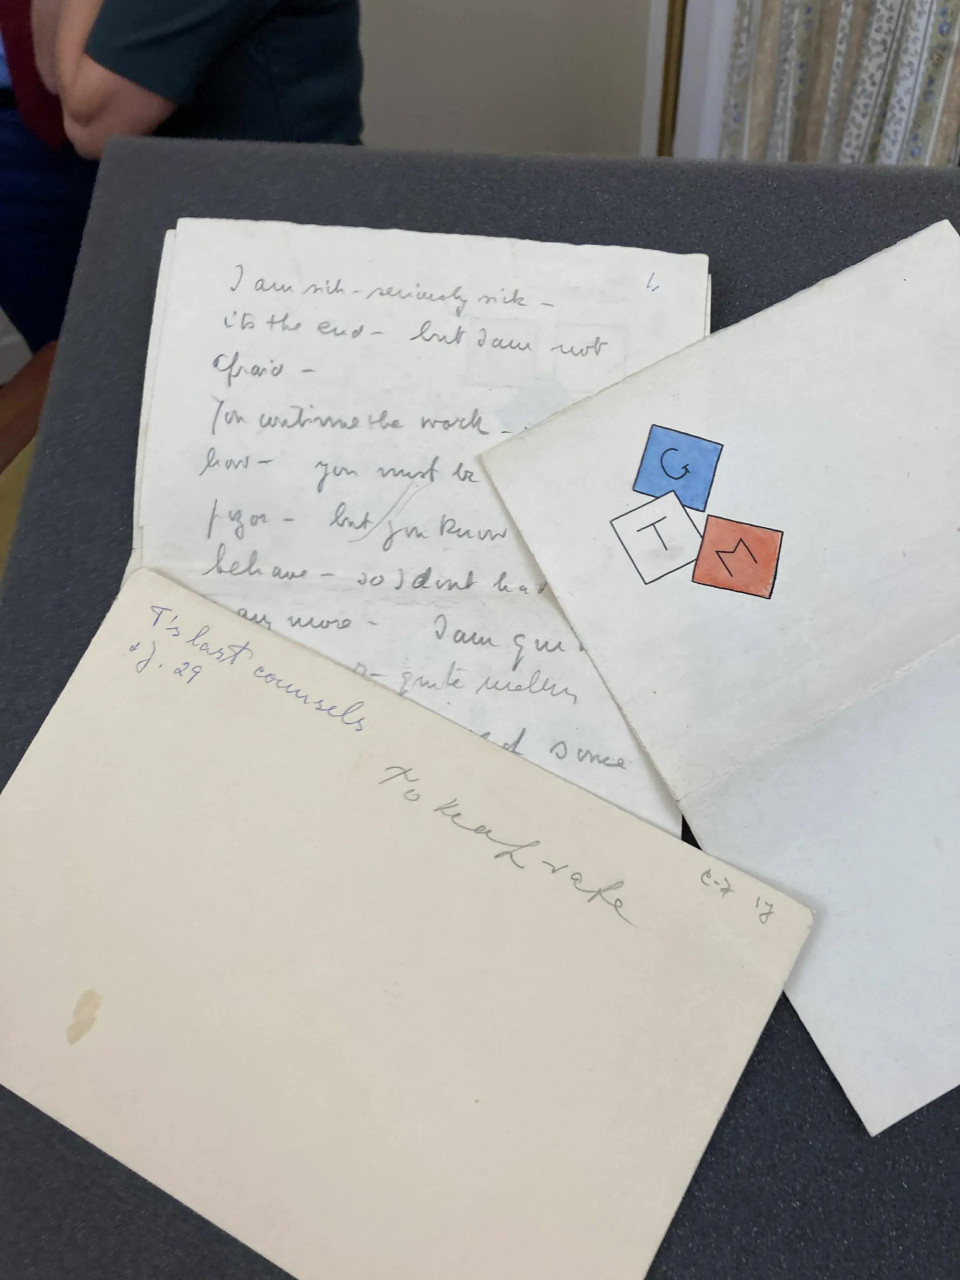 1,
I am sick - seriously sick -
its the end - but I am not
afraid -
You continue the work -
how - you must be
but you know
behave - so I dont ha
any more - I am qui
quite
since
T's last counsels
J. 29
To Keap safe
G
T
M